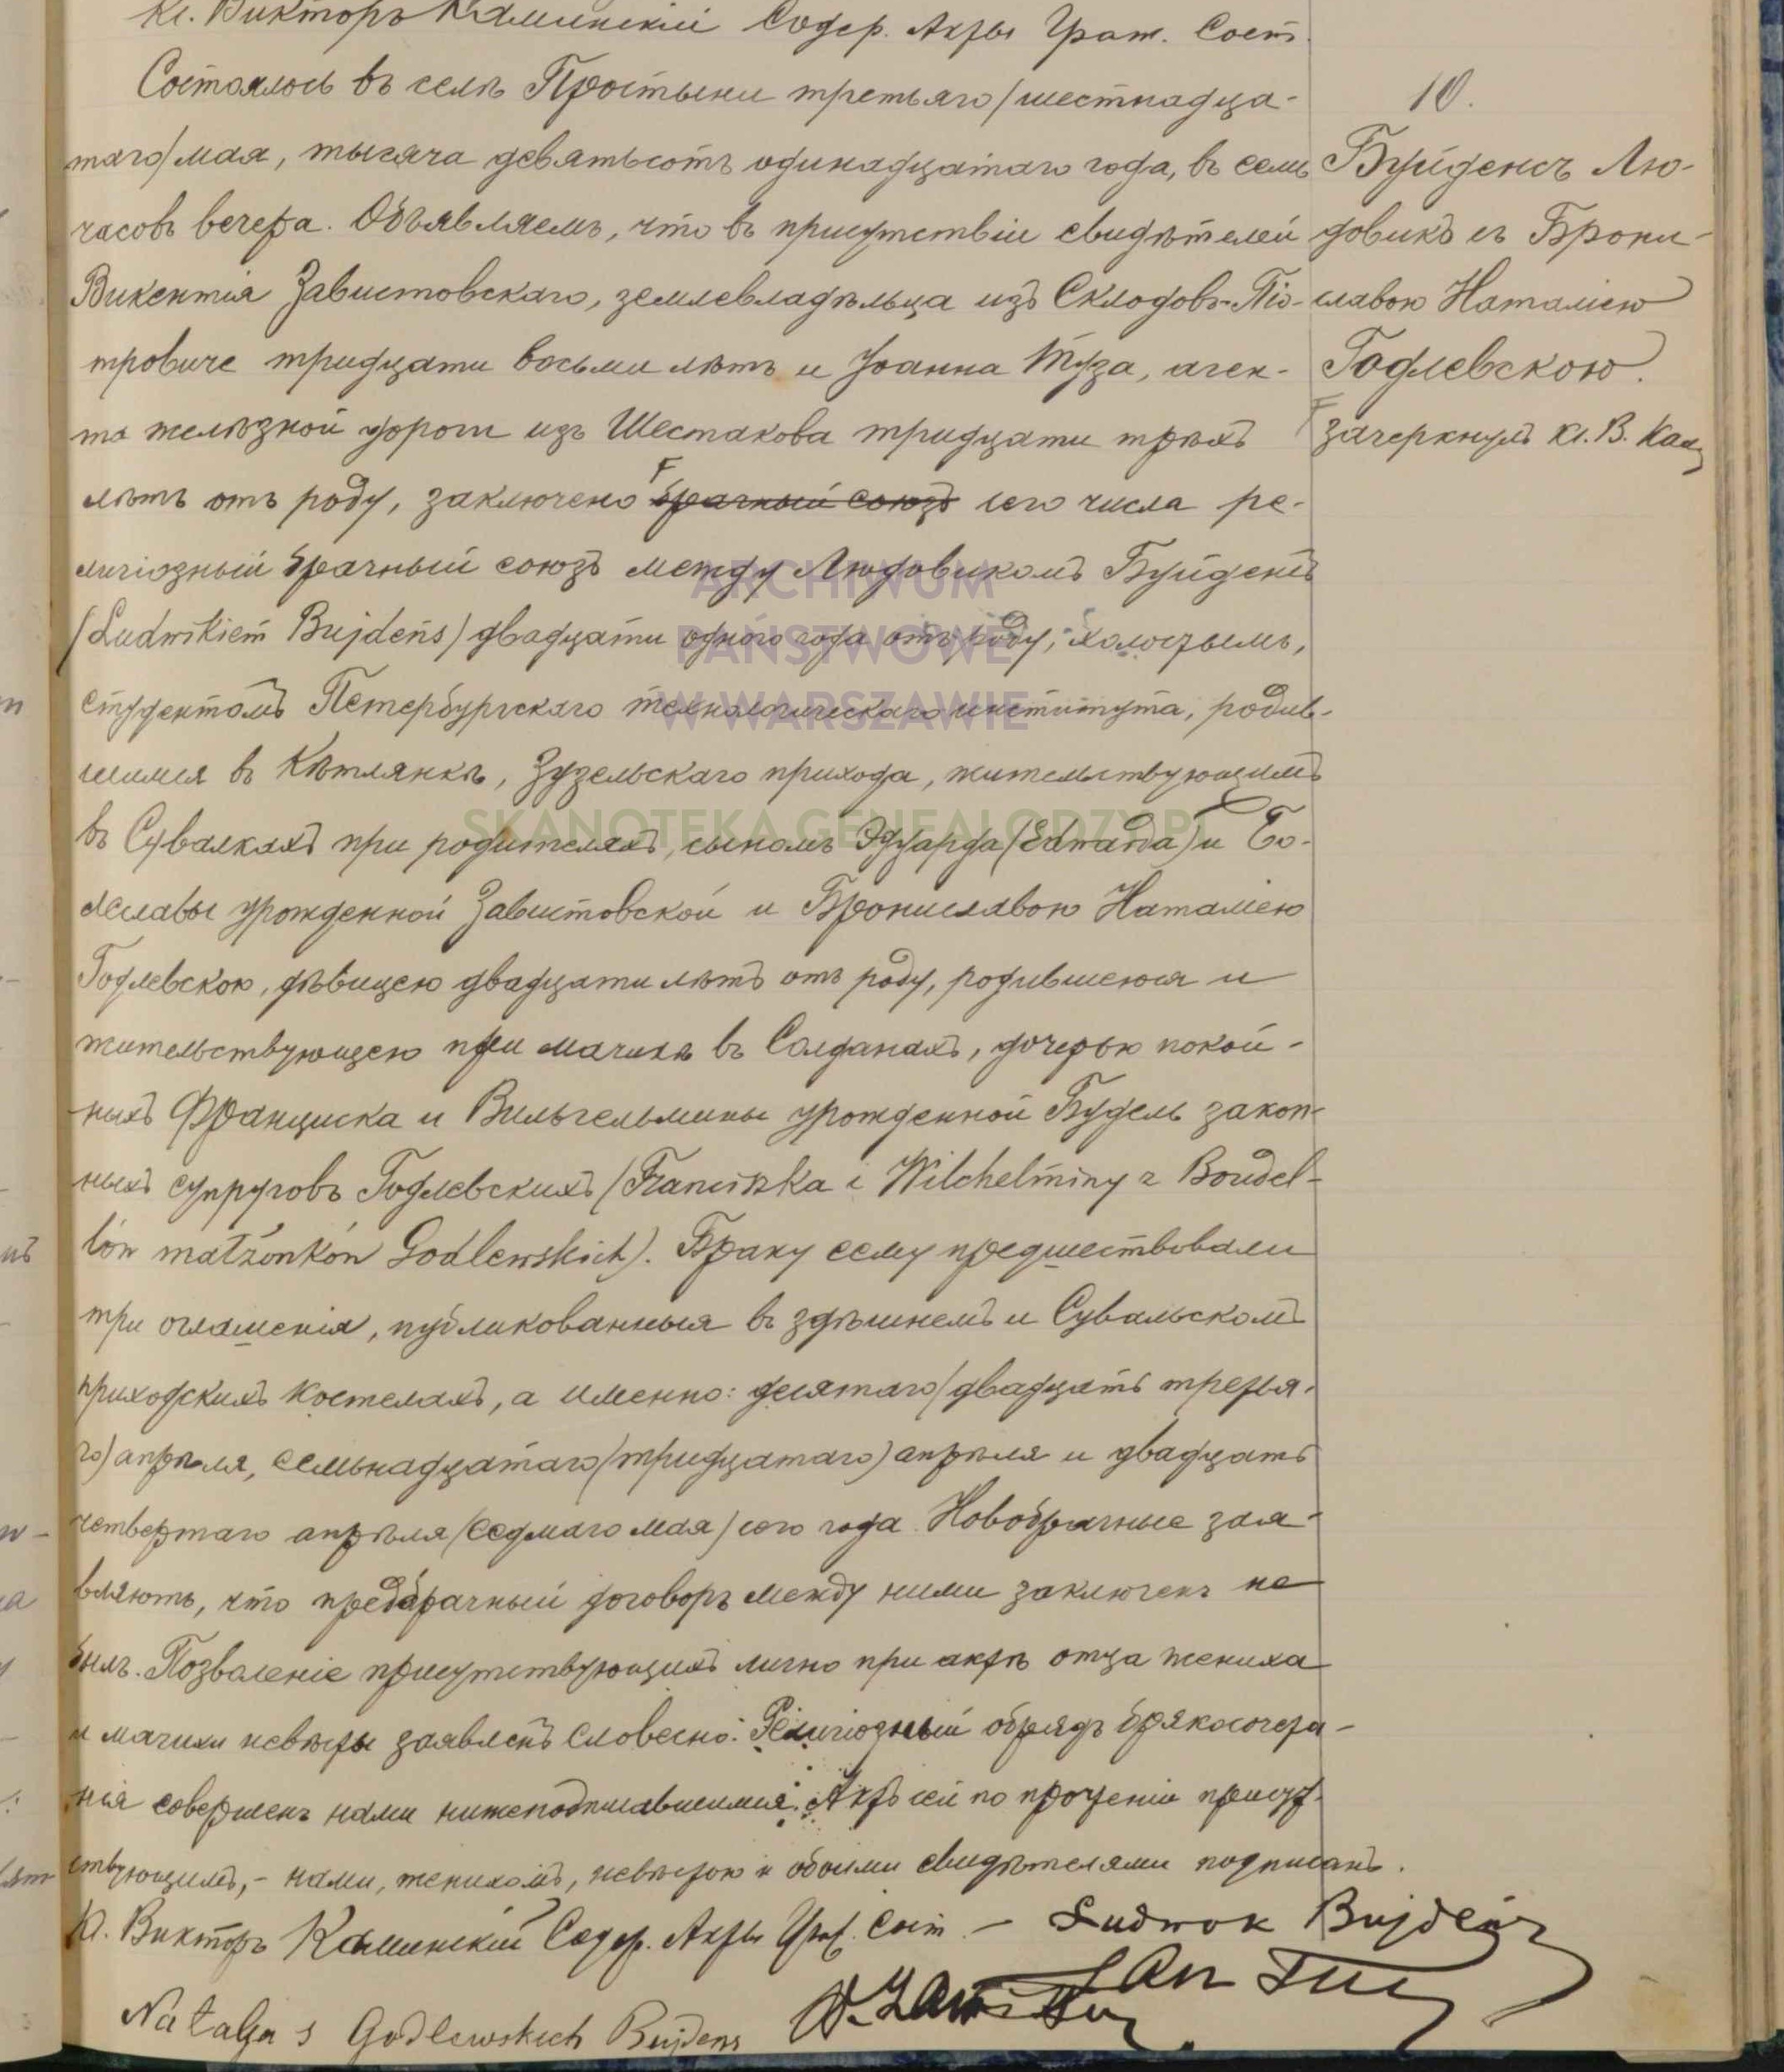 Кс. Викторъ Каминскій Содер. Акты Граж. Сост.
Состоялось въ селѣ Простыни третьяго /шестнадца-
таго/ мая, тысяча девятьсотъ одинадцатаго года, въ семь
часовъ вечера. Объявляемъ, что въ присутствіи свидѣтелей
Викентія Завистовскаго, землевладѣльца изъ Склодовъ-Піо-
тровице тридцати восьми лѣтъ и Іоанна Туза, аген-
та желѣзной дороги изъ Шестакова тридцати трехъ
лѣтъ отъ роду, заключено брачный союзъ сего числа ре-
лигіозный брачный союзъ между Людовикомъ Буйденсъ
/Ludwikiem Bujdens/ двадцати одного года отъ роду, холостымъ,
студентомъ Петербургскаго технологическаго института, родив-
шимся въ Кѣтлянкѣ, Зузельскаго прихода, жительствующимъ
въ Сувалкахъ при родителяхъ, сыномъ Эдуарда (Edwarda) и Бо-
леславы урожденной Завистовской и Брониславою Наталіею
Годлевскою, дѣвицею двадцати лѣтъ отъ роду, родившеюся и
жительствующею при мачихѣ въ Солданахъ, дочерью покой-
ныхъ Франциска и Вильгельмины урожденной Будель закон-
ныхъ супруговъ Годлевскихъ /Franciszka i Wilchelminy z Boudel-
lów małżonków Godlewskich). Браку сему предшествовали
три оглашенія, публикованныя въ здѣшнемъ и Сувальскомъ
приходскихъ костелахъ, а именно: десятаго /двадцать третья-
го) апрѣля, семьнадцатаго (тридцатаго) апрѣля и двадцать
четвертаго апрѣля (седмаго мая) сего года. Новобрачные зая-
вляютъ, что предбрачный договоръ между ними заключенъ не
былъ. Позволеніе присутствующихъ лично при актѣ отца жениха
и мачихи невѣсты заявленъ словесно. Религіозный обрядъ бракосочета-
нія совершенъ нами нижеподписавшимися. Актъ сей по прочтеніи присут-
ствующимъ, - нами, женихомъ, невѣстою и обоими свидѣтелями подписанъ.
Кс. Викторъ Каминскій Содер. Акты Граж. Сост. - Ludwik Bujdens
Jan Tuz
Natalja z Godlewskich Bujdens
10.
Буйденсъ Лю-
довикъ съ Брони-
славою Наталіею
Годлевскою.
зачеркнулъ кс. В. Кам
ARCHIWUM
PAŃSTWOWE
W WARSZAWIE
SKANOTEKA.GENEALODZY.PL